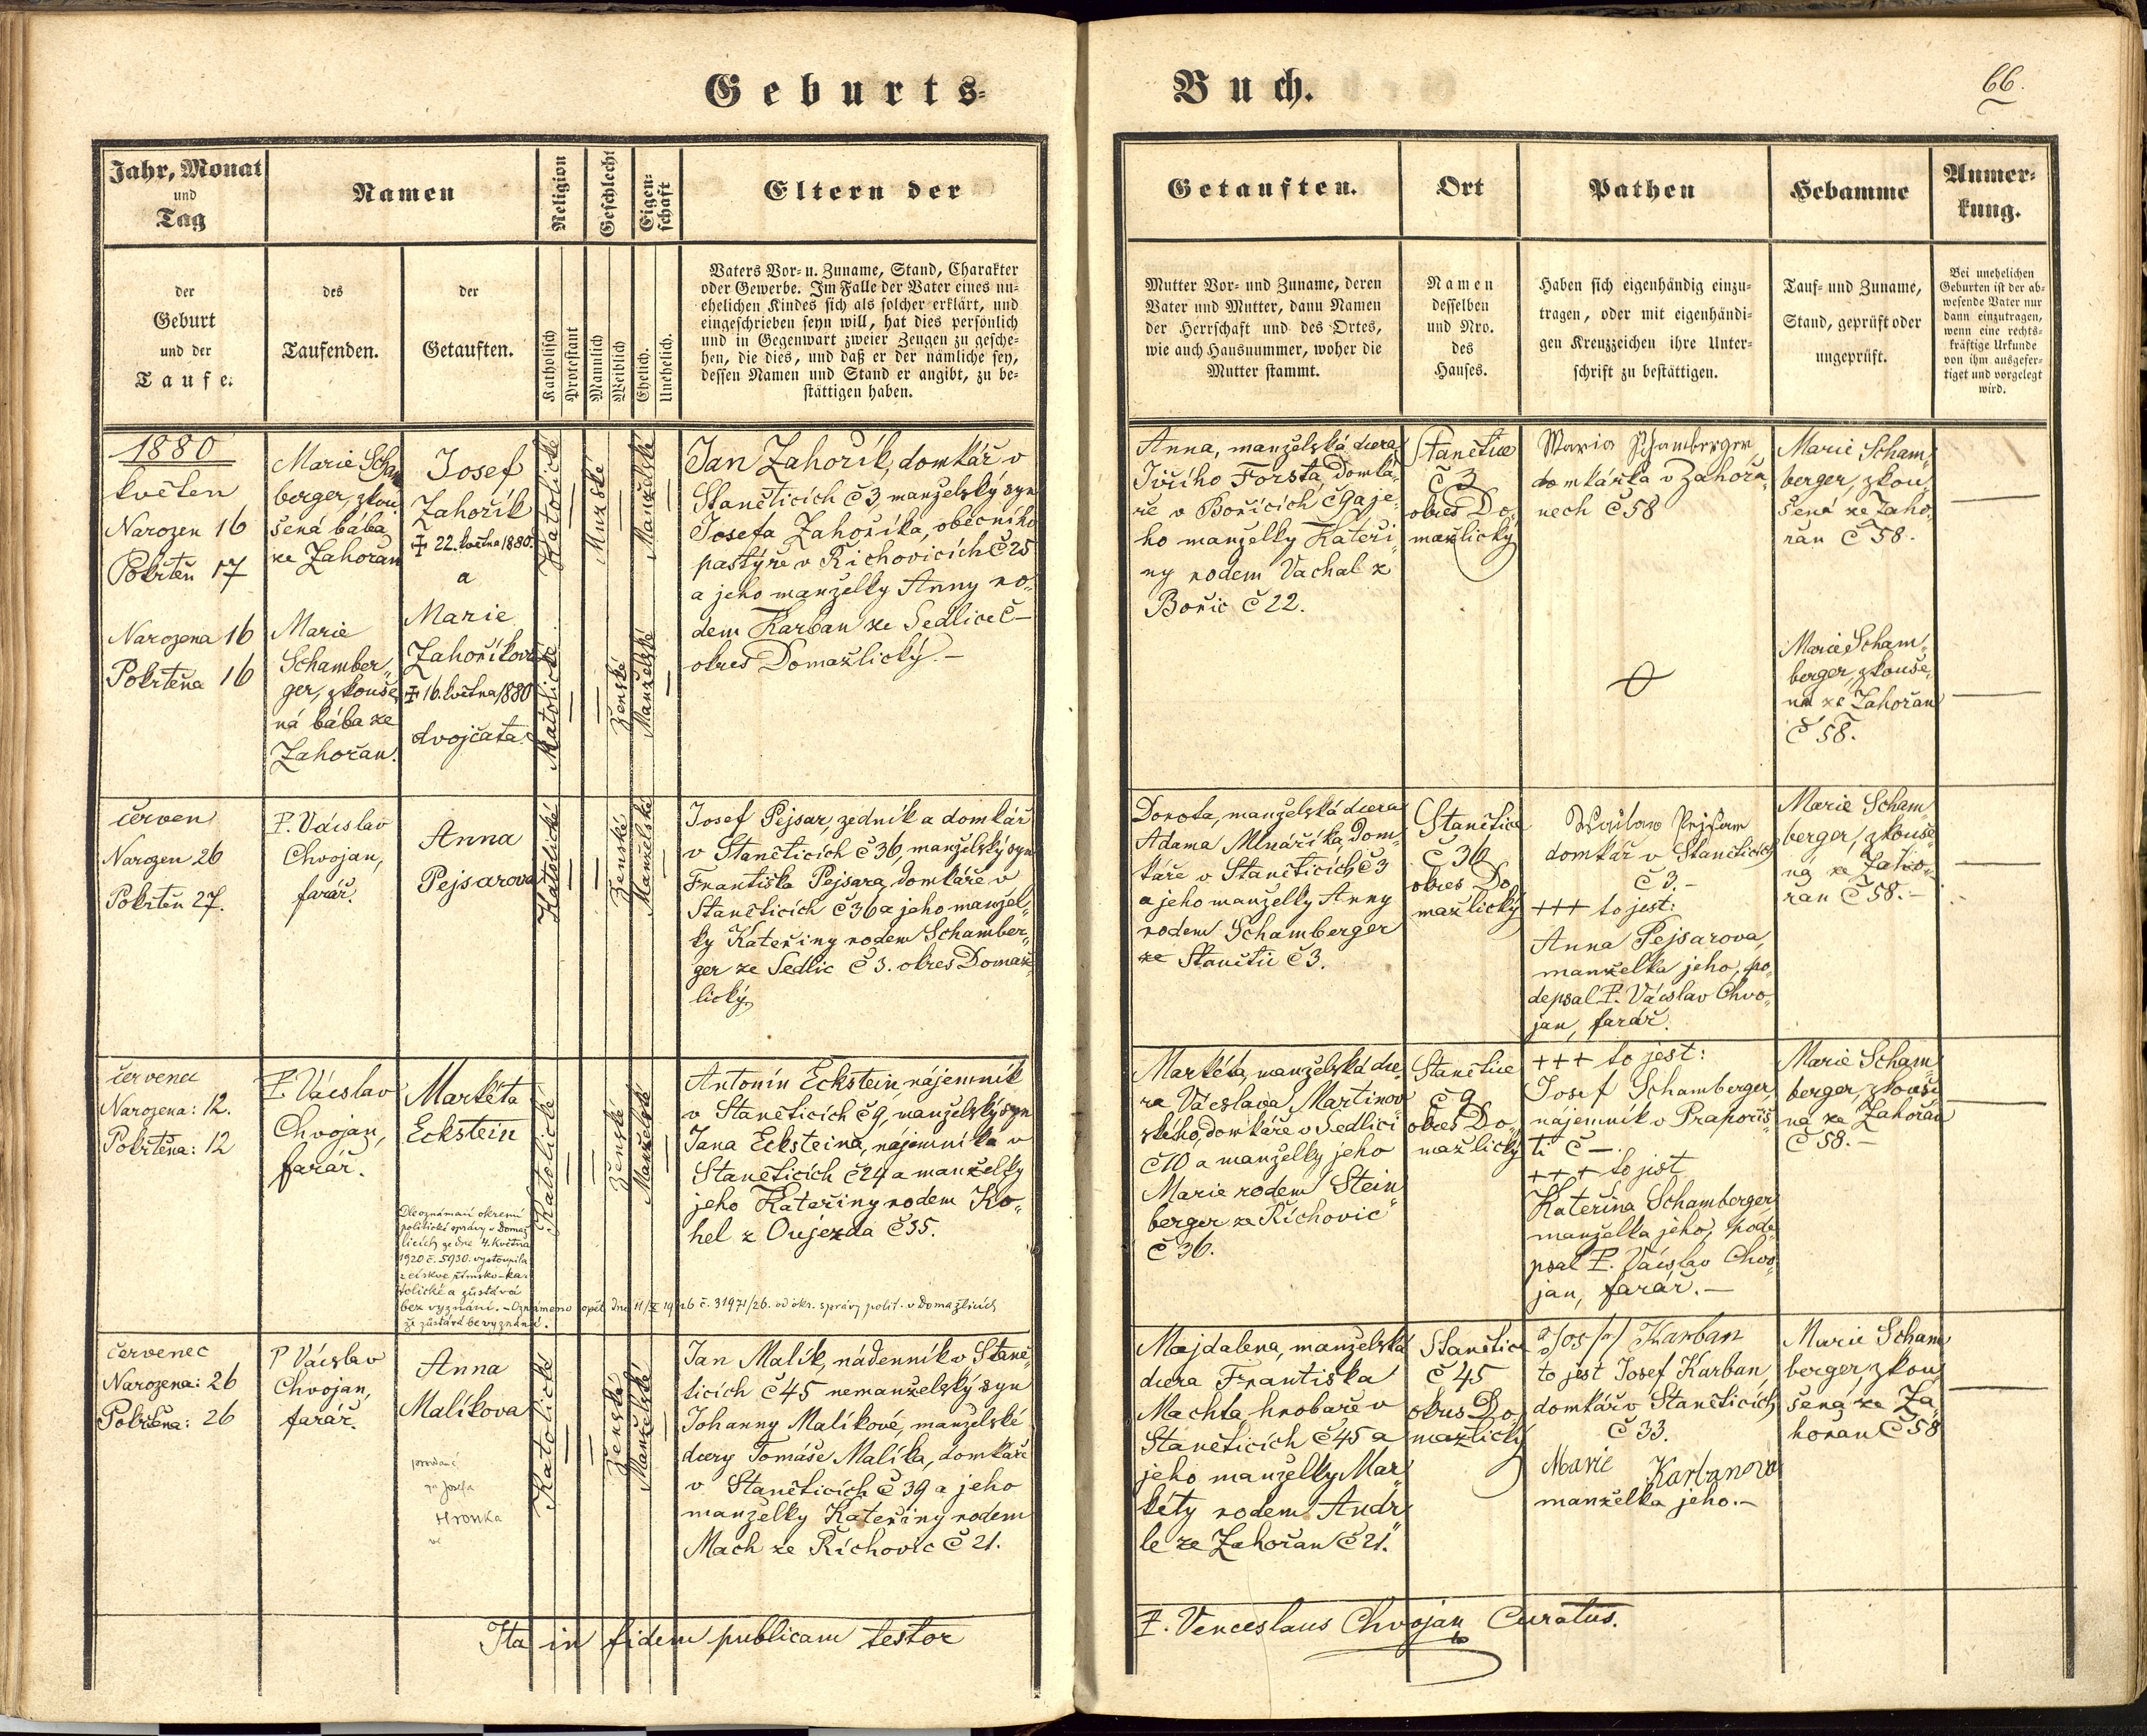 Geburts-
Buch.
66.
Jahr, Monat
und
Tag
Namen
Religion
Geschlecht
Eigen-
schaft
Eltern der
Getauften.
Ort
Pathen
Hebamme
Anmer-
kung.
der
Geburt
und der
Taufe.
des
Taufenden.
der
Getauften.
Katholisch
Protestant
Männlich
Weiblich
Ehelich.
Unehelich.
Vaters Vor- u. Zuname, Stand, Charakter
oder Gewerbe. Im Falle der Vater eines un-
ehelichen Kindes sich als solcher erklärt, und
eingeschrieben seyn will, hat dies persönlich
und in Gegenwart zweier Zeugen zu gesche-
hen, die dies, und daß er der nämliche sey,
dessen Namen und Stand er angibt, zu be-
stättigen haben.
Mutter Vor- und Zuname, deren
Vater und Mutter, dann Namen
der Herrschaft und des Ortes,
wie auch Hausnummer, woher die
Mutter stammt.
Namen
desselben
und Nro.
des
Hauses.
Haben sich eigenhändig einzu-
tragen, oder mit eigenhändi-
gen Kreuzzeichen ihre Unter-
schrift zu bestättigen.
Tauf- und Zuname,
Stand, geprüft oder
ungeprüft.
Bei unehelichen
Geburten ist der ab-
wesende Vater nur
dann einzutragen,
wenn eine rechts-
kräftige Urkunde
von ihm ausgefer-
tiget und vorgelegt
wird.
1880
květen
Narozen 16
Pokřtěn 17
Marie Scham
berger, zkou„
šená bába
ze Zahořan
Josef
Zahořík
‡ 22. května 1880.
a
Katolické
Mužské
Manželské
Jan Zahořík, domkář v
Staněticích č 3, manželský syn
Josefa Zahoříka, obecního
pastýře v Řichovicích č 25
a jeho manželky Anny ro„
dem Karban ze Sedlice č –
okres Domažlický. –
Anna, manželská dcera
Jiřího Forsta, domká„
ře v Bořicích, č 9 a je„
ho manželky Kateři„
ny rodem Vachal z
Bořic č 22.
Stanětice
č 3
okres Do„
mažlický
Maria Schamberger,
domkářka v Zahořa„
nech č 58
Marie Scham„
berger, zkou„
šená ze Zaho„
řan č 58.
Narozena 16
Pokřtěna 16
Marie
Schamber„
ger, zkouše„
ná bába ze
Zahořan.
Marie
Zahoříkova
‡ 16. května 1880
dvojčata.
Katolické
Ženské
Manželské
Marie Scham„
berger, zkouše„
ná ze Zahořan
č 58.
červen
Narozen 26
Pokřtěn 27.
P. Vácslav
Chvojan,
farář.
Anna
Pejsarova
Katolické
Ženské
Manželské
Josef Pejsar, zedník a domkář
v Staněticích č 36, manželský syn
Františka Pejsara, domkáře v
Staněticích č 36 a jeho manžel„
ky Kateřiny rodem Schamber„
ger ze Sedlic č 3. okres Domaž„
lický.
Dorota, manželská dcera
Adama Mlnáříka, dom„
káře v Staněticích č 3
a jeho manželky Anny
rodem Schamberger
ze Stanětic č 3.
Stanětice
č 36
okres Do„
mažlický
domkář v Staněticích
č 3. –
+++ to jest:
Anna Pejsarova,
manželka jeho, po„
depsal P. Vácslav Chvo„
jan, farář.
Marie Scham„
berger, zkouše„
ná ze Zaho„
řan č 58. –
červenec
Narozena: 12.
Pokřtěna: 12
P. Vácslav
Chvojan,
farář.
Markéta
Eckstein
Dle oznámení okresní
politické správy v Domaž
licích ze dne 4. května
1920 č. 5930. vystoupila
z církve římsko-ka„
tolické a zůstává
bez vyznání. – Oznámeno opět dne 11/X 1926 č. 31971/26. od okr. správy polit. v Domažlicích
že zůstává bez vyznání.
Katolické
Ženské
Manželské
Antonín Eckstein, nájemník
v Staněticích č 9, manželský syn
Jana Ecksteina, nájemníka v
Staněticích č 24 a manželky
jeho Kateřiny rodem Ko„
hel z Oujezda č 35.
Markéta, manželská dce„
ra Vácslava Martinov
ského, domkáře v Sedlici
č 10 a manželky jeho
Marie rodem Stein„
berger ze Řichovic
č 36.
Stanětice
č 9
okres Do„
mažlický
+++ to jest:
Josef Schamberger,
nájemník v Prapoříš„
ti č –.
+++ to jest
Kateřina Schamberger
manželka jeho, pode„
psal P. Vácslav Chvo„
jan, farář. –
Marie Scham„
berger, zkouše„
ná ze Zahořan
č 58. –
červenec
Narozena: 26
Pokřtěna: 26
P Vácslav
Chvojan,
farář.
Anna
Malíkova
za Josefa
Hronka
Katolické
Ženské
Manželské
Jan Malík, nádenník v Staně„
ticích č 45 nemanželský syn
Johanny Malíkové, manželské
dcery Tomáše Malíka, domkáře
v Staněticích č 39 a jeho
manželky Kateřiny rodem
Mach ze Řichovic č 21.
Majdalena, manželská
dcera Františka
Machta, hrobaře v
Staněticích č 45 a
jeho manželky Mar„
kéty rodem Andr„
le ze Zahořan č 21.
Stanětice
č 45
okres Do„
mažlický
Karban
to jest Josef Karban,
domkář v Staněticích
č 33.
Marie Karbanová
manželka jeho. –
Marie Scham„
berger, zkou„
šená ze Za„
hořan č 58
Ita in fidem publicam testor
P. Venceslaus Chvojan Curatus.